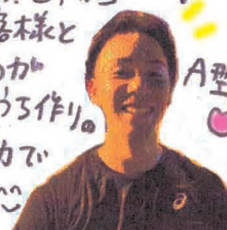 客様と
のが
うち作り。
力で
A型